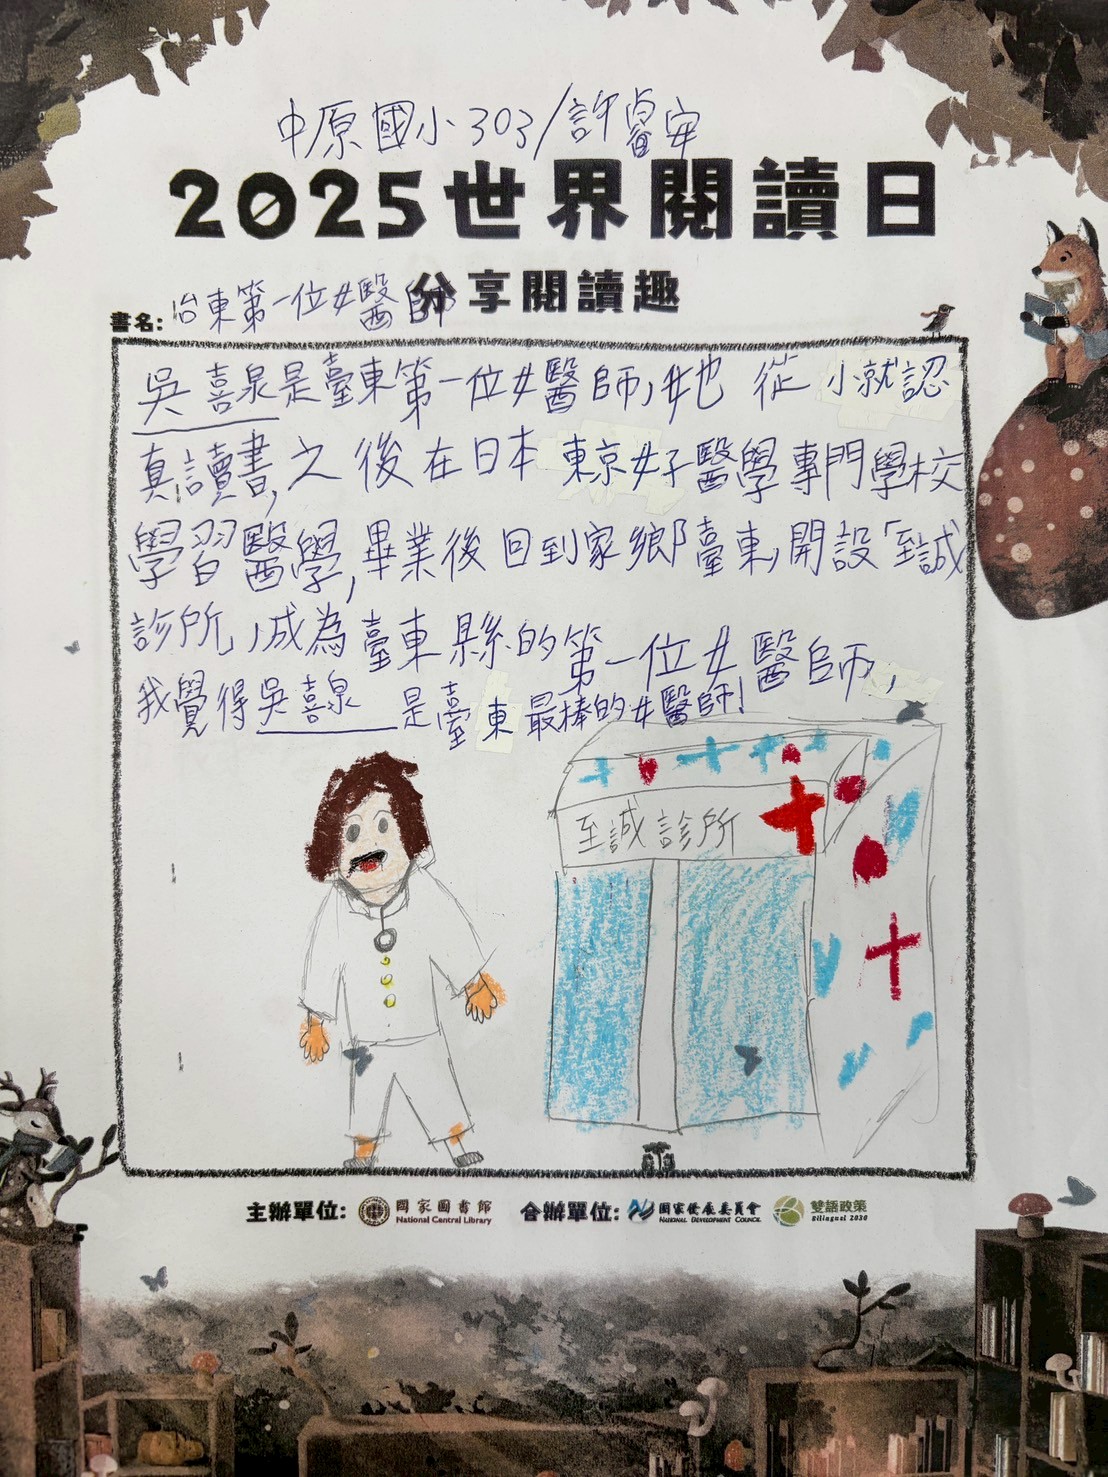 中原國小303/許睿安
2025世界閱讀日
分享閱讀趣
書名:台東第一位女醫師
吳喜泉是臺東第一位女醫師,她從小就認
真讀書,之後在日本東京女子醫學專門學校
學習醫學,畢業後回到家鄉臺東,開設「至誠
診所」,成為臺東縣的第一位女醫師,
我覺得吳喜泉是臺東最棒的女醫師!
至誠診所
主辦單位: 國家圖書館 National Central Library 合辦單位: 國家發展委員會 NATIONAL DEVELOPMENT COUNCIL 雙語政策 Bilingual 2030